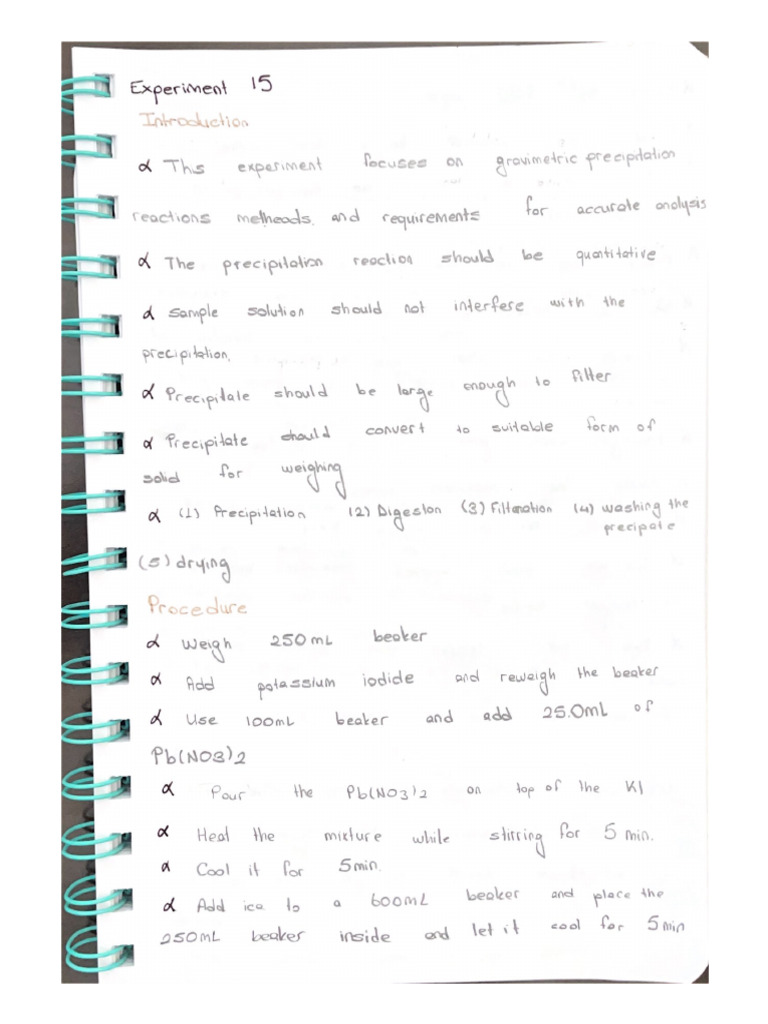 Experiment 15
Introduction
α This experiment focuses on gravimetric precipitation
reactions metheads, and requirements for accurate analysis
α The precipitation reaction should be quantitative
α sample solution should not interfese with the
precipitation.
α Precipitate should be large enough to filter
α Precipitate should convert to suitable form of
solid for weighing
α (1) Precipitation (2) Digeston (3) Filteration (4) washing the
precipate
(5) drying
Procedure
α Weigh 250mL beaker
α Add potassium iodide and reweigh the beaker
α Use 100mL beaker and add 25.0mL of
Pb(NO3)2
α Pour the Pb(NO3)2 on top of the KI
α Heat the mixture while stirring for 5 min.
α Cool it for 5min.
α Add ice to a 600mL beaker and place the
250mL beaker inside and let it cool for 5min